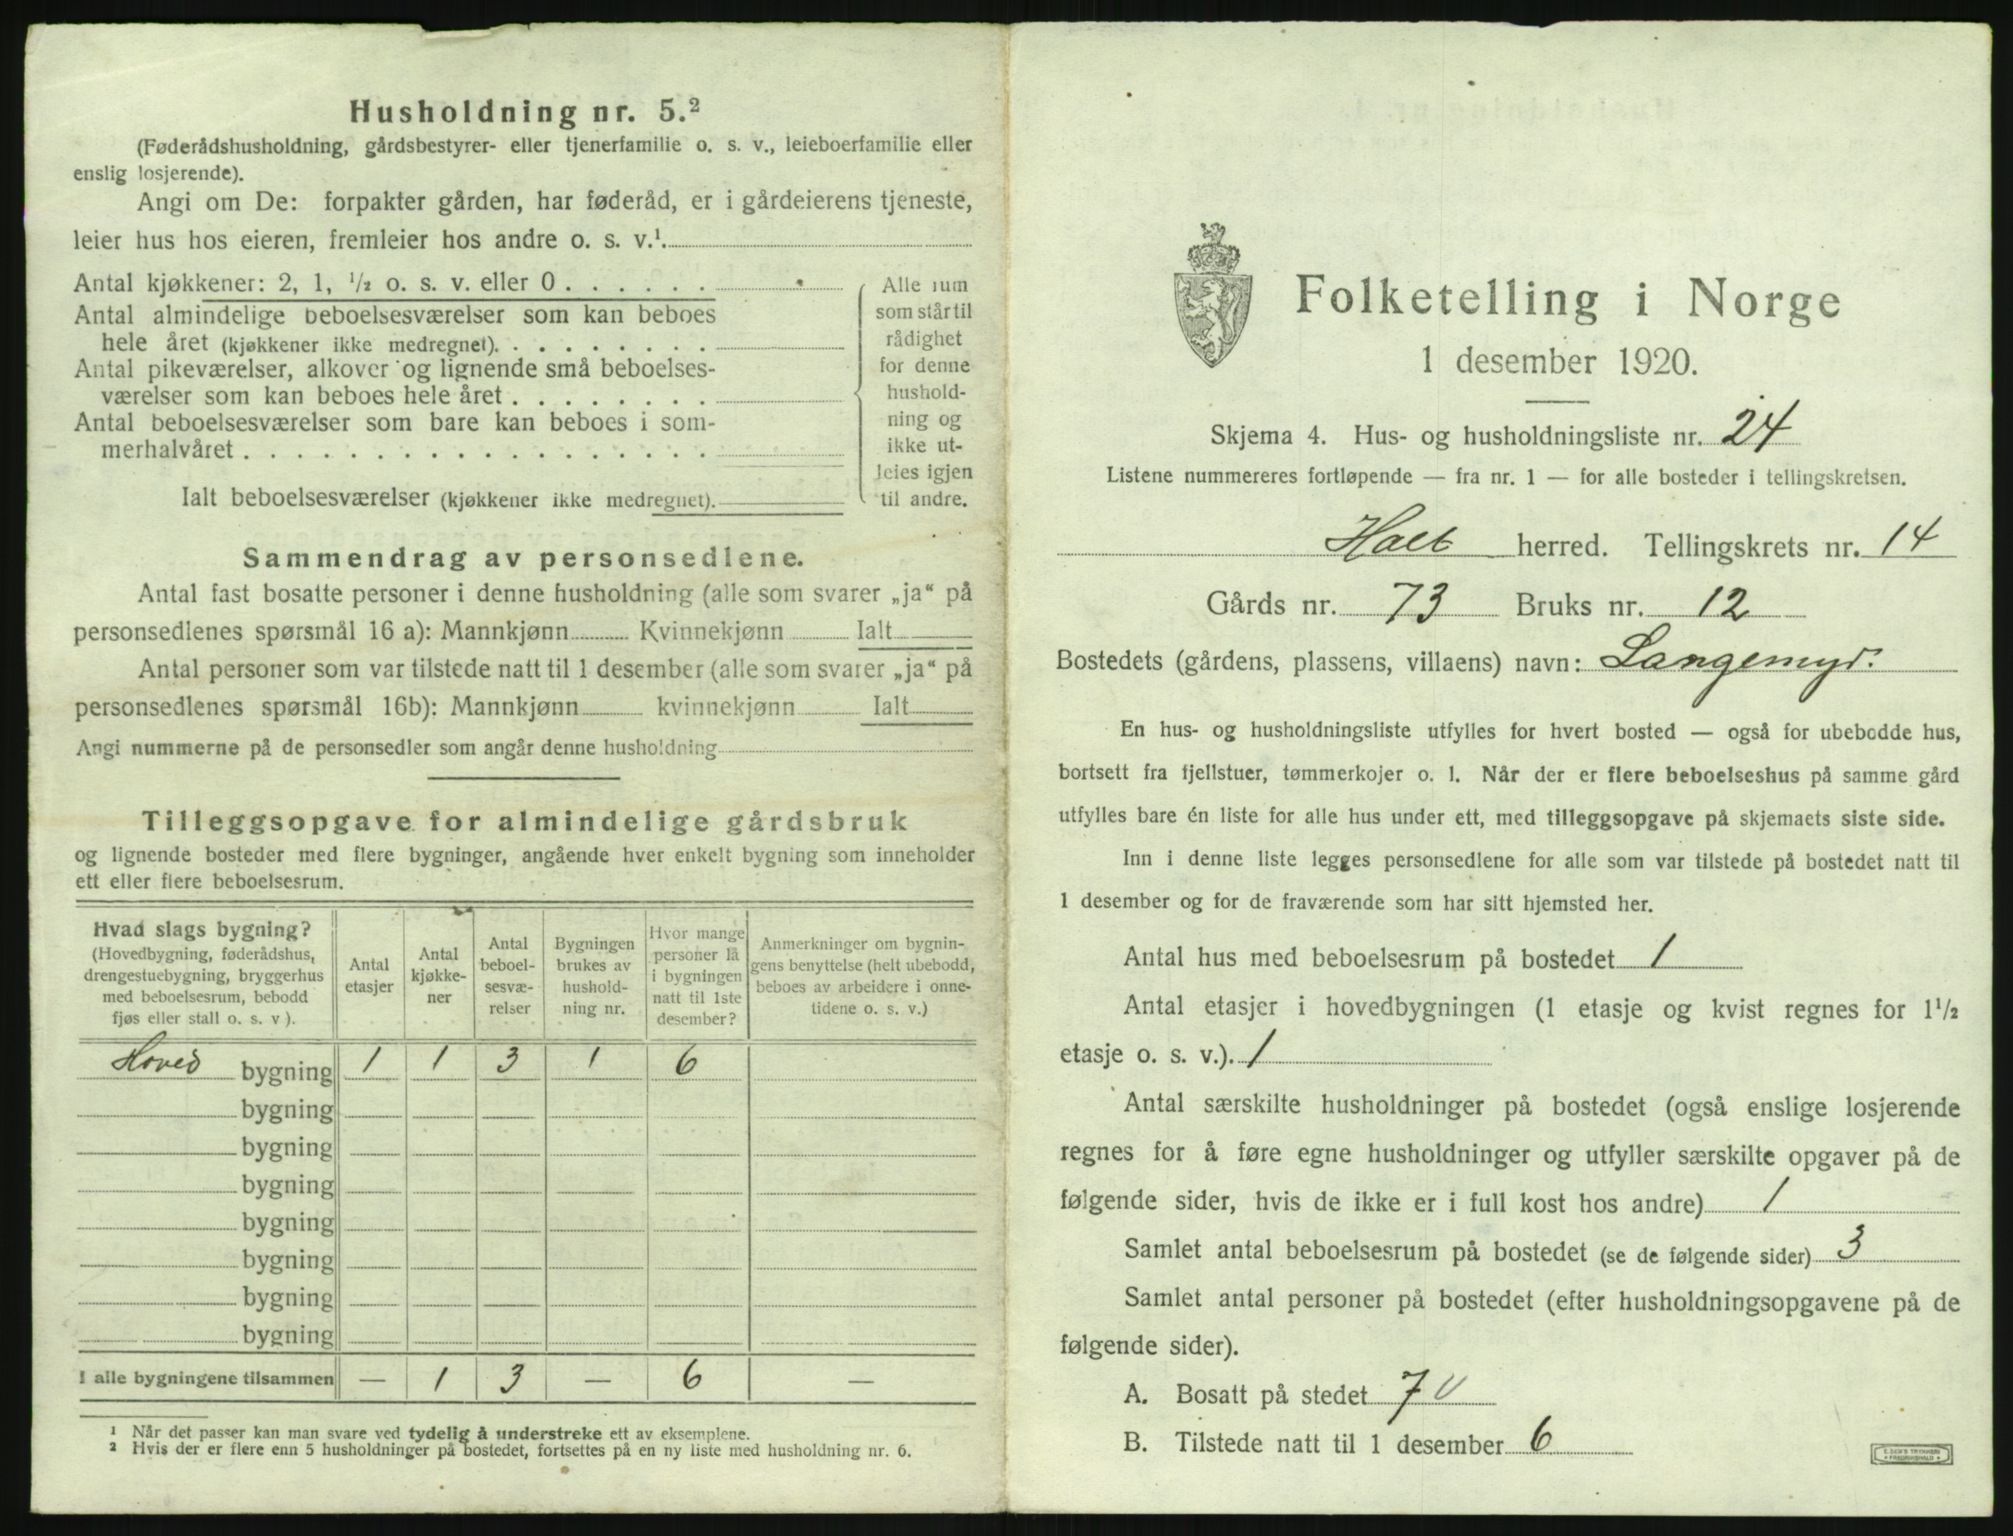 Husholdning nr. 5.²
(Føderådshusholdning, gårdsbestyrer- eller tjenerfamilie o. s. v., leieboerfamilie eller
enslig losjerende).
Angi om De: forpakter gården, har føderåd, er i gårdeierens tjeneste,
leier hus hos eieren, fremleier hos andre o. s. v.¹.
Antal kjøkkener: 2, 1, ½ o. s. v. eller 0 . . . . . .
Antal almindelige beboelsesværelser som kan beboes
hele året (kjøkkener ikke medregnet). . . . . . . . .
Antal pikeværelser, alkover og lignende små beboelses-
værelser som kan beboes hele året . . . . . . . .
Antal beboelsesværelser som bare kan beboes i som-
merhalvåret . . . . . . . . . . . . . . . . . .
Ialt beboelsesværelser (kjøkkener ikke medregnet).
Alle rum
som står til
rådighet
for denne
hushold-
ning og
ikke ut-
leies igjen
til andre.
Sammendrag av personsedlene.
Antal fast bosatte personer i denne husholdning (alle som svarer „ja“ på
personsedlenes spørsmål 16 a): Mannkjønn Kvinnekjønn Ialt
Antal personer som var tilstede natt til 1 desember (alle som svarer „ja“ på
personsedlenes spørsmål 16b): Mannkjønn kvinnekjønn Ialt
Angi nummerne på de personsedler som angår denne husholdning
Tilleggsopgave for almindelige gårdsbruk
og lignende bosteder med flere bygninger, angående hver enkelt bygning som inneholder
ett eller flere beboelsesrum.
Hvad slags bygning?
(Hovedbygning, føderådshus,
drengestuebygning, bryggerhus
med beboelsesrum, bebodd
fjøs eller stall o. s. v ).
Antal
etasjer
Antal
kjøkke-
ner
Antal
beboel-
sesvæ-
relser
Bygningen
brukes av
hushold-
ning nr.
Hvor mange
personer lå
i bygningen
natt til 1ste
desember?
Anmerkninger om bygnin-
gens benyttelse (helt ubebodd,
beboes av arbeidere i onne-
tidene o. s. v.)
Hoved bygning 1 1 3 1 6
bygning
bygning
bygning
bygning
bygning
bygning
bygning
I alle bygningene tilsammen — 1 3 — 6 —
¹ Når det passer kan man svare ved tydelig å understreke ett av eksemplene.
² Hvis der er flere enn 5 husholdninger på bostedet, fortsettes på en ny liste med husholdning nr. 6.
Folketelling i Norge
1 desember 1920.
Skjema 4. Hus- og husholdningsliste nr. 24
Listene nummereres fortløpende — fra nr. 1 — for alle bosteder i tellingskretsen.
Holt herred. Tellingskrets nr. 14
Gårds nr. 73 Bruks nr. 12
Bostedets (gårdens, plassens, villaens) navn: Langemyr.
En hus- og husholdningsliste utfylles for hvert bosted — også for ubebodde hus,
bortsett fra fjellstuer, tømmerkojer o. l. Når der er flere beboelseshus på samme gård
utfylles bare én liste for alle hus under ett, med tilleggsopgave på skjemaets siste side.
Inn i denne liste legges personsedlene for alle som var tilstede på bostedet natt til
1 desember og for de fraværende som har sitt hjemsted her.
Antal hus med beboelsesrum på bostedet 1
Antal etasjer i hovedbygningen (1 etasje og kvist regnes for 1½
etasje o. s. v.). 1
Antal særskilte husholdninger på bostedet (også enslige losjerende
regnes for å føre egne husholdninger og utfyller særskilte opgaver på de
følgende sider, hvis de ikke er i full kost hos andre) 1
Samlet antal beboelsesrum på bostedet (se de følgende sider) 3
Samlet antal personer på bostedet (efter husholdningsopgavene på de
følgende sider).
A. Bosatt på stedet 7
B. Tilstede natt til 1 desember 6